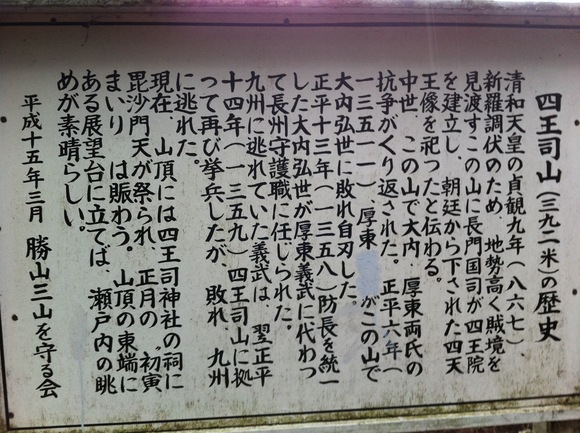 四王司山(三九二米)の歴史
清和天皇の貞観九年(八六七)
新羅調伏のため、地勢高く賊境を
見渡すこの山に長門国司が四王院
を建立し、朝廷から下された四天
王像を祀つたと伝わる。
中世、この山で大内、厚東両氏の
抗争がくり返された。正平六年(
一三五一一)、厚東 がこの山で
大内弘世に敗れ自刃した。
正平十三年(一三五八)防長を統一
した大内弘世が厚東義武に代わつ
て長州守護職に任じられた。
九州に逃れていた義武は、翌正平
十四年(一三五九)四王司山に拠
つて再び挙兵したが、敗れ、九州
に逃れた。
現在、山頂には四王司神社の祠に
毘沙門天が祭られ、正月の〝初寅
まいり は賑わう。山頂の東端に
ある展望台に立てば、瀬戸内の眺
めが素晴らしい。
平成十五年三月 勝山三山を守る会